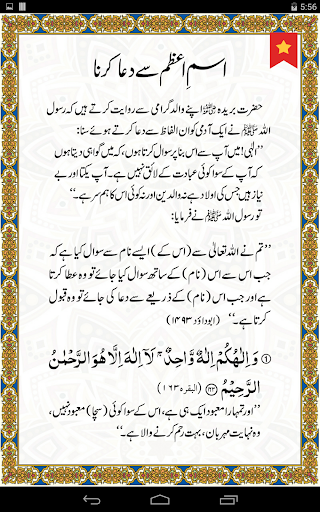 5:56
اسمِ اعظم سے دعا کرنا
حضرت بریدہ ﷺ اپنے والد گرامی سے روایت کرتے ہیں کہ رسول
اللہ ﷺ نے ایک آدمی کو ان الفاظ سے دعا کرتے ہوئے سنا:
”الٰہی! میں آپ سے اس بنا پر سوال کرتا ہوں، کہ میں گواہی دیتا ہوں
کہ آپ کے سوا کوئی عبادت کے لائق نہیں ہے۔ آپ یکتا اور بے
نیاز ہیں جس کی اولاد ہے نہ والدین اور نہ کوئی اس کا ہم سر ہے۔“
تو رسول اللہ ﷺ نے فرمایا:
”تم نے اللہ تعالیٰ سے (اس کے) ایسے نام سے سوال کیا ہے کہ
جب اس سے اس (نام) کے ساتھ سوال کیا جائے تو وہ عطا کرتا
ہے اور جب اس (نام) کے ذریعے سے دعا کی جائے تو وہ قبول
کرتا ہے۔“ (ابوداؤد ۱۴۹۳)
① وَاِلٰهُكُمْ اِلٰهٌ وَّاحِدٌ ۚ لَآ اِلٰهَ اِلَّا هُوَ الرَّحْمٰنُ
الرَّحِيْمُ ﴿۱۶۳﴾ (البقرہ ۱۶۳)
”اور تمہارا معبود ایک ہی ہے، اس کے سوا کوئی (سچا) معبود نہیں،
وہ نہایت مہربان، بہت رحم کرنے والا ہے۔“